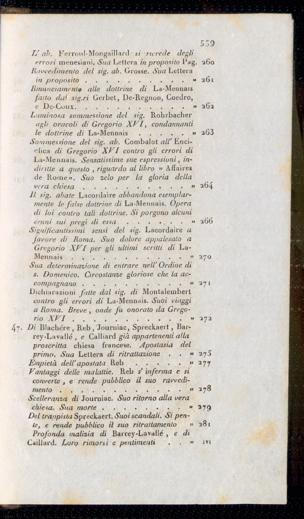 559
L' ab. Ferroul-Mongaillard si ricrede degli
errori menesiani. Sua Lettera in proposito Pag. 260
Ravvedimento del sig. ab. Grosse. Sua Lettera
in proposito . . . . . . . . . . » 261
Rinunciamento alle dottrine di La-Mennais
fatto dai sig.ri Gerbet, De-Regnon, Coedro,
e De-Coux. . . . . . . . . . . » 262
Luminosa sommessione del sig. Rohrbacher
agli oracoli di Gregorio XVI, condannanti
le dottrine di La-Mennais . . . . . » 263
Sommessione del sig. ab. Combalot all' Enci-
clica di Gregorio XVI contro gli errori di
La-Mennais. Sensatissime sue espressioni, in-
dirette a questo, riguardo al libro » Affaires
de Rome». Suo zelo per la gloria della
vera chiesa . . . . . . . . . . » 264
Il sig. abate Lacordaire abbandona esemplar-
mente le false dottrine di La-Mennais. Opera
di lui contro tali dottrine. Si porgono alcuni
cenni sui pregi di essa . . . . . . » 266
Significantissimi sensi del sig. Lacordaire a
favore di Roma. Suo dolore appalesato a
Gregorio XVI per gli ultimi scritti di La-
Mennais . . . . . . . . . . . » 270
Sua determinazione di entrare nell'Ordine di
s. Domenico. Circostanze gloriose che la ac-
compagnano . . . . . . . . . . » 271
Dichiarazioni fatte dal sig. di Montalembert
contro gli errori di La-Mennais. Suoi viaggi
a Roma. Breve, onde fu onorato da Grego-
rio XVI . . . . . . . . . . . » 272
47. Di Blachère, Reb, Journiac, Spreckaert, Bar-
rey-Lavallé, e Calliard già appartenenti alla
proscritta chiesa francese. Apostasia del
primo. Sua Lettera di ritrattazione . . » 275
Empietà dell'apostata Reb . . . . . » 277
Vantaggi delle malattie. Reb s' inferma e si
converte, e rende pubblico il suo ravvedi-
mento . . . . . . . . . . . . » 278
Scelleranza di Journiac. Suo ritorno alla vera
chiesa. Sua morte . . . . . . . . » 279
Del trappista Spreckaert. Suoi scandali. Si pen-
te, e rende pubblico il suo ritrattamento » 281
Profonda malizia di Barrey-Lavallé, e di
Caillard. Loro rimorsi e pentimenti . . »